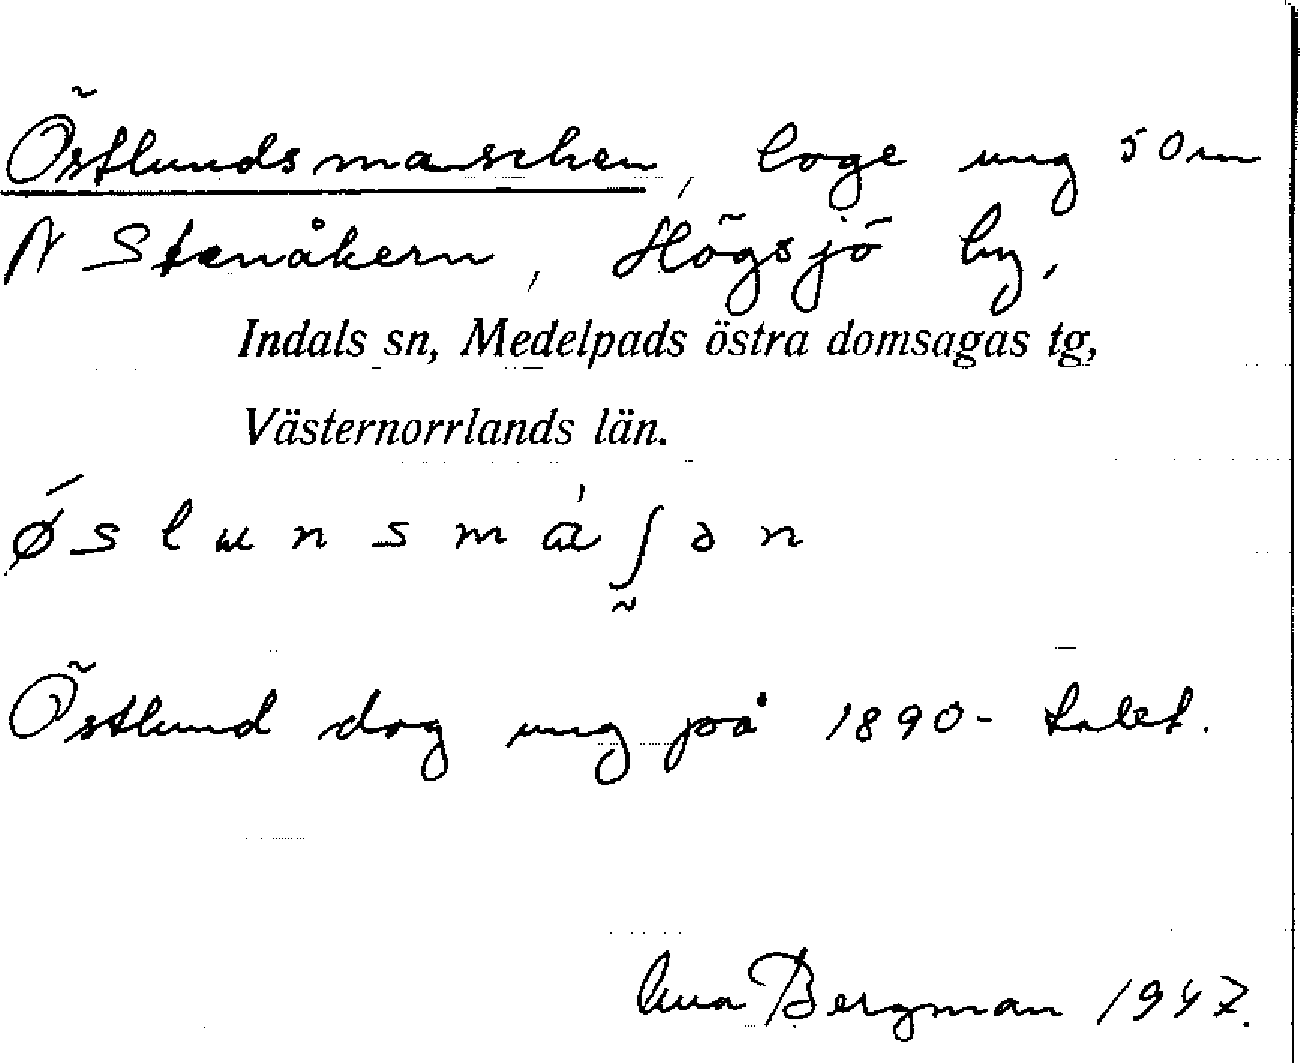 Östlundsmaschen, loge ung 50 m
N Stenåkern, Högsjö by,
Indals sn, Medelpads östra domsagas tg,
Västernorrlands län.
ǿslunsmáʃən
Östlund dog ung på 1890-talet.
Bergman 1947.